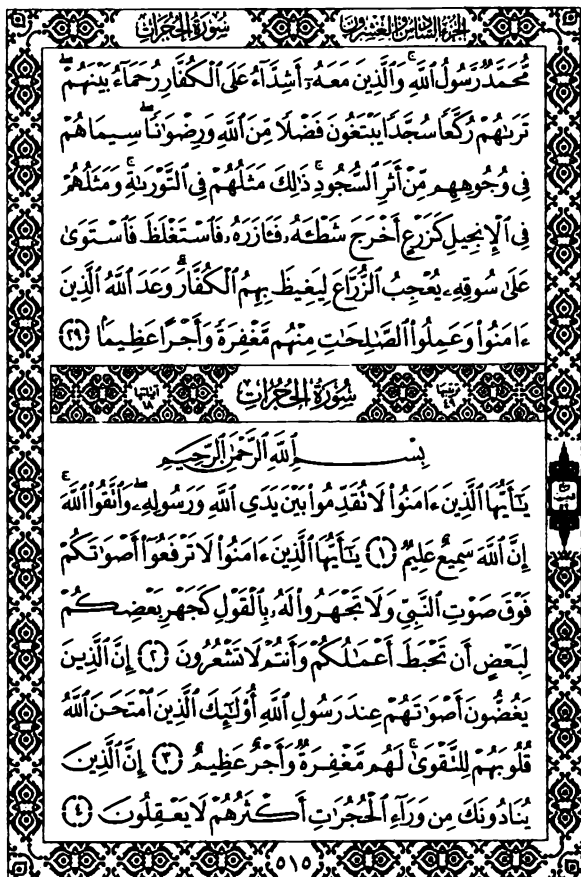 سُورَةُ الحُجُرَاتِ الجُزْءُ السَّادِسُ وَالعِشْرُونَ
مُّحَمَّدٌ رَّسُولُ ٱللَّهِۚ وَٱلَّذِينَ مَعَهُۥٓ أَشِدَّآءُ عَلَى ٱلْكُفَّارِ رُحَمَآءُ بَيْنَهُمْۖ
تَرَىٰهُمْ رُكَّعًا سُجَّدًا يَبْتَغُونَ فَضْلًا مِّنَ ٱللَّهِ وَرِضْوَٰنًاۖ سِيمَاهُمْ
فِى وُجُوهِهِم مِّنْ أَثَرِ ٱلسُّجُودِۚ ذَٰلِكَ مَثَلُهُمْ فِى ٱلتَّوْرَىٰةِۚ وَمَثَلُهُمْ
فِى ٱلْإِنجِيلِ كَزَرْعٍ أَخْرَجَ شَطْـَٔهُۥ فَـَٔازَرَهُۥ فَٱسْتَغْلَظَ فَٱسْتَوَىٰ
عَلَىٰ سُوقِهِۦ يُعْجِبُ ٱلزُّرَّاعَ لِيَغِيظَ بِهِمُ ٱلْكُفَّارَۗ وَعَدَ ٱللَّهُ ٱلَّذِينَ
ءَامَنُوا۟ وَعَمِلُوا۟ ٱلصَّٰلِحَٰتِ مِنْهُم مَّغْفِرَةً وَأَجْرًا عَظِيمًۢا ٢٩
ترتيبها ٤٩ سُورَةُ الحُجُرَاتِ آياتها ١٨
بِسْمِ ٱللَّهِ ٱلرَّحْمَٰنِ ٱلرَّحِيمِ
يَـٰٓأَيُّهَا ٱلَّذِينَ ءَامَنُوا۟ لَا تُقَدِّمُوا۟ بَيْنَ يَدَىِ ٱللَّهِ وَرَسُولِهِۦۖ وَٱتَّقُوا۟ ٱللَّهَۚ
إِنَّ ٱللَّهَ سَمِيعٌ عَلِيمٌ ١ يَـٰٓأَيُّهَا ٱلَّذِينَ ءَامَنُوا۟ لَا تَرْفَعُوٓا۟ أَصْوَٰتَكُمْ
فَوْقَ صَوْتِ ٱلنَّبِىِّ وَلَا تَجْهَرُوا۟ لَهُۥ بِٱلْقَوْلِ كَجَهْرِ بَعْضِكُمْ
لِبَعْضٍ أَن تَحْبَطَ أَعْمَٰلُكُمْ وَأَنتُمْ لَا تَشْعُرُونَ ٢ إِنَّ ٱلَّذِينَ
يَغُضُّونَ أَصْوَٰتَهُمْ عِندَ رَسُولِ ٱللَّهِ أُو۟لَـٰٓئِكَ ٱلَّذِينَ ٱمْتَحَنَ ٱللَّهُ
قُلُوبَهُمْ لِلتَّقْوَىٰۚ لَهُم مَّغْفِرَةٌ وَأَجْرٌ عَظِيمٌ ٣ إِنَّ ٱلَّذِينَ
يُنَادُونَكَ مِن وَرَآءِ ٱلْحُجُرَٰتِ أَكْثَرُهُمْ لَا يَعْقِلُونَ ٤
٥١٥